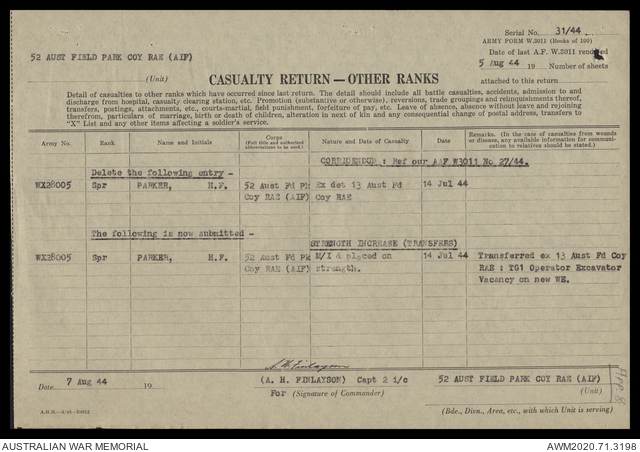 Serial No. 31/44
ARMY FORM W.3011 (Books of 100)
Date of last A.F. W.3011 rendered
5 Aug 44 19 Number of sheets
attached to this return
52 AUST FIELD PARK COY RAE (AIF)
(Unit)
CASUALTY RETURN — OTHER RANKS
Detail of casualties to other ranks which have occurred since last return. The detail should include all battle casualties, accidents, admission to and
discharge from hospital, casualty clearing station, etc. Promotion (substantive or otherwise), reversions, trade groupings and relinquishments thereof,
transfers, postings, attachments, etc., courts-martial, field punishment, forfeiture of pay, etc. Leave of absence, absence without leave and rejoining
therefrom, particulars of marriage, birth or death of children, alteration in next of kin and any consequential change of postal address, transfers to
"X" List and any other items affecting a soldier's service.
Army No. Rank Name and Initials Corps (Full title and authorized abbreviations to be used.) Nature and Date of Casualty Date Remarks. (In the case of casualties from wounds or disease, any available information for communication to relatives should be stated.)
CORRIGENDUM : Ref our AAF W3011 No 27/44.
Delete the following entry -
WX28005 Spr PARKER, H.F. 52 Aust Fd Pk Ex det 13 Aust Fd 14 Jul 44
Coy RAE (AIF) Coy RAE
The following is now submitted -
STRENGTH INCREASE (TRANSFERS)
WX28005 Spr PARKER, H.F. 52 Aust Fd Pk M/I & placed on 14 Jul 44 Transferred ex 13 Aust Fd Coy
Coy RAE (AIF) strength. RAE : TG1 Operator Excavator
Vacancy on new WE.
A H Finlayson
Date 7 Aug 44 19 (A. H. FINLAYSON) Capt 2 i/c 52 AUST FIELD PARK COY RAE (AIF)
For (Signature of Commander) (Unit)
(Bde., Divn., Area, etc., with which Unit is serving)
App. 8
AUSTRALIAN WAR MEMORIAL AWM2020.71.3198